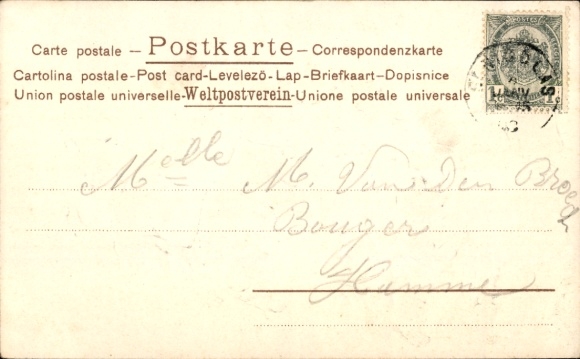 Carte postale – Postkarte – Correspondenzkarte
Cartolina postale-Post card-Levelező-Lap-Briefkaart-Dopisnice
Union postale universelle-Weltpostverein-Unione postale universale
POSTES
1c 1c
Melle M. Van Den Broeck
Bouger
Hamme